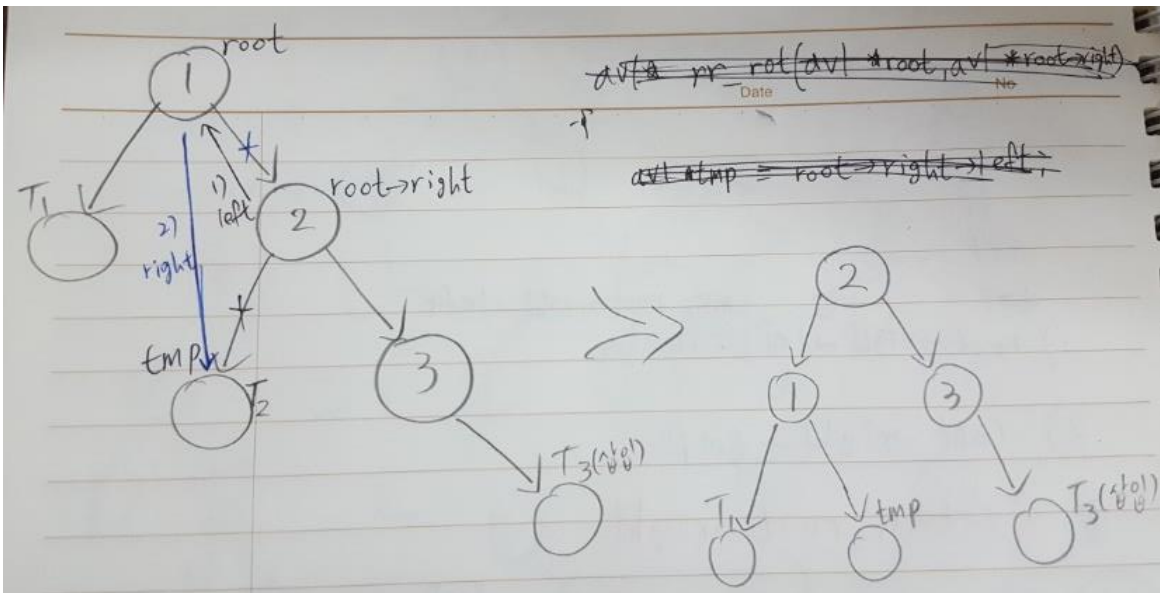 root
avl* rr_rot(avl *root, avl *root->right)
Date
No
avl *tmp = root->right->left;
1
T1
1)
left
2)
right
2
root->right
tmp
T2
3
T3(삽입)
2
1
3
T1
tmp
T3(삽입)